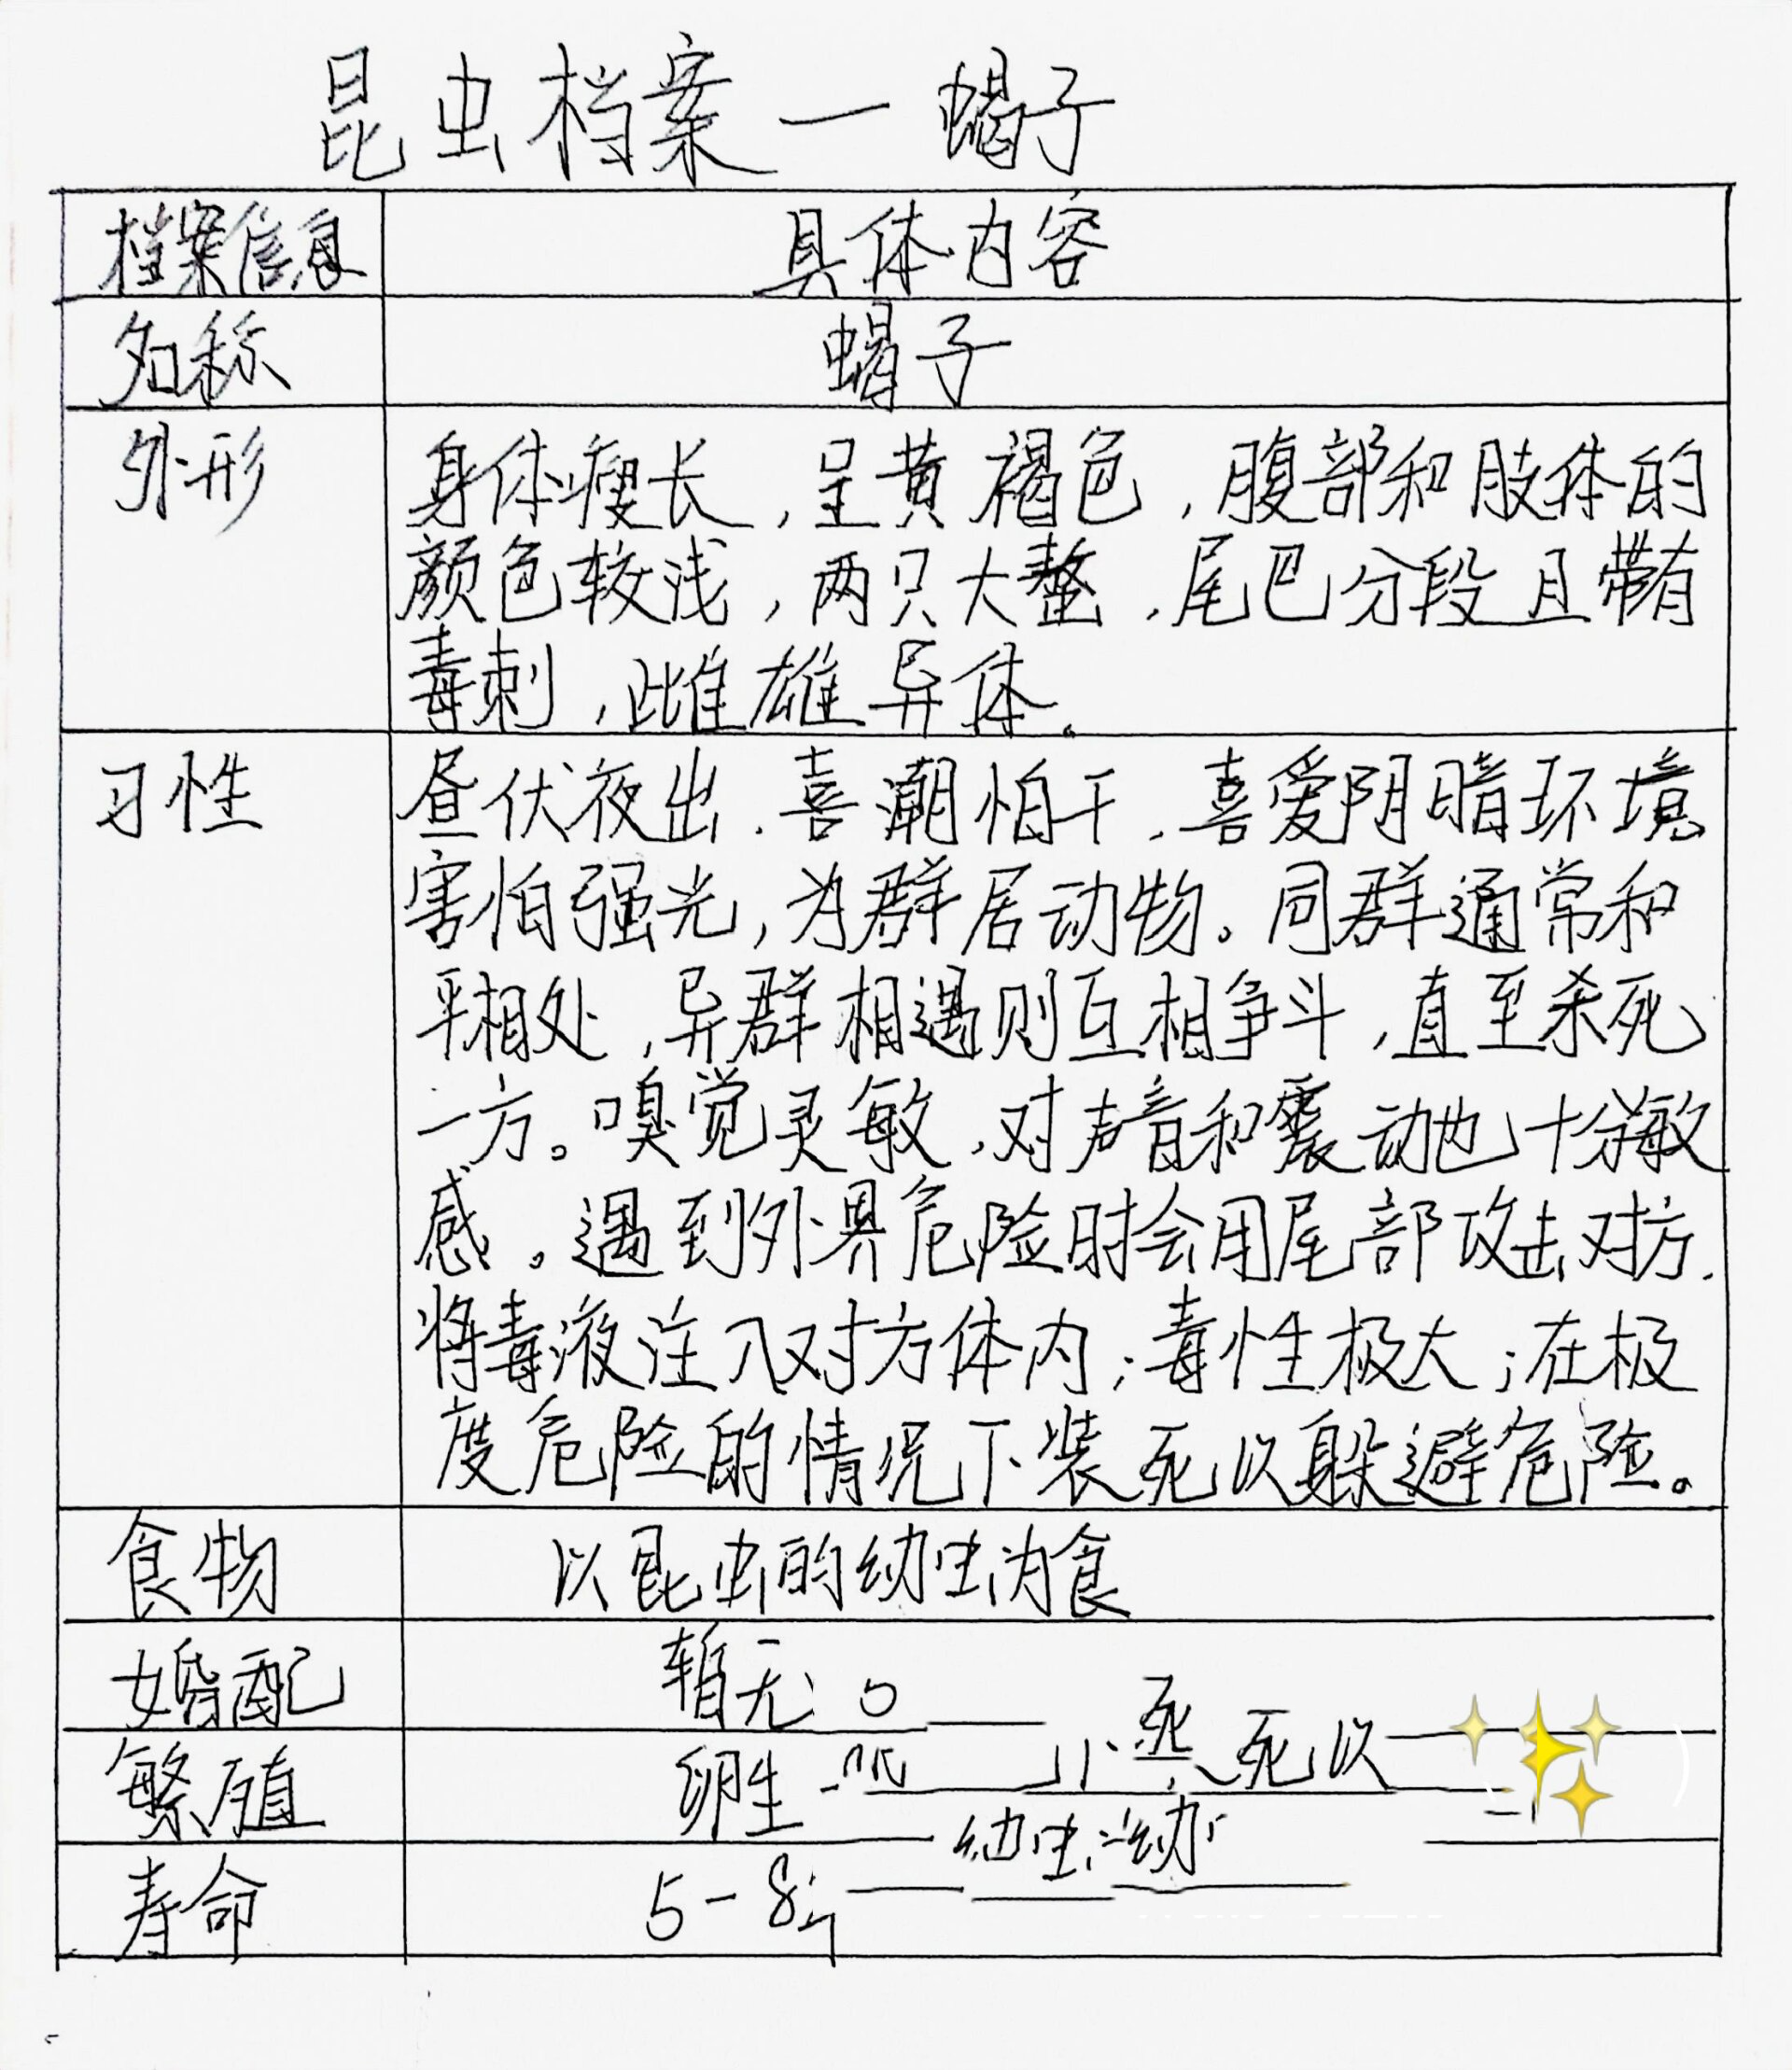 昆虫档案一蝎子
档案信息 具体内容
名称 蝎子
外形 身体瘦长,呈黄褐色,腹部和肢体的
颜色较浅,两只大螯,尾巴分段且带有
毒刺,雌雄异体。
习性 昼伏夜出,喜潮怕干,喜爱阴暗环境
害怕强光,为群居动物。同群通常和
平相处,异群相遇则互相争斗,直至杀死
一方。嗅觉灵敏,对声音和震动也十分敏
感。遇到外界危险时会用尾部攻击对方,
将毒液注入对方体内;毒性极大;在极
度危险的情况下装死以躲避危险。
食物 以昆虫的幼虫为食
婚配 暂无
死
繁殖 卵生
死以
幼虫
寿命 5-8年